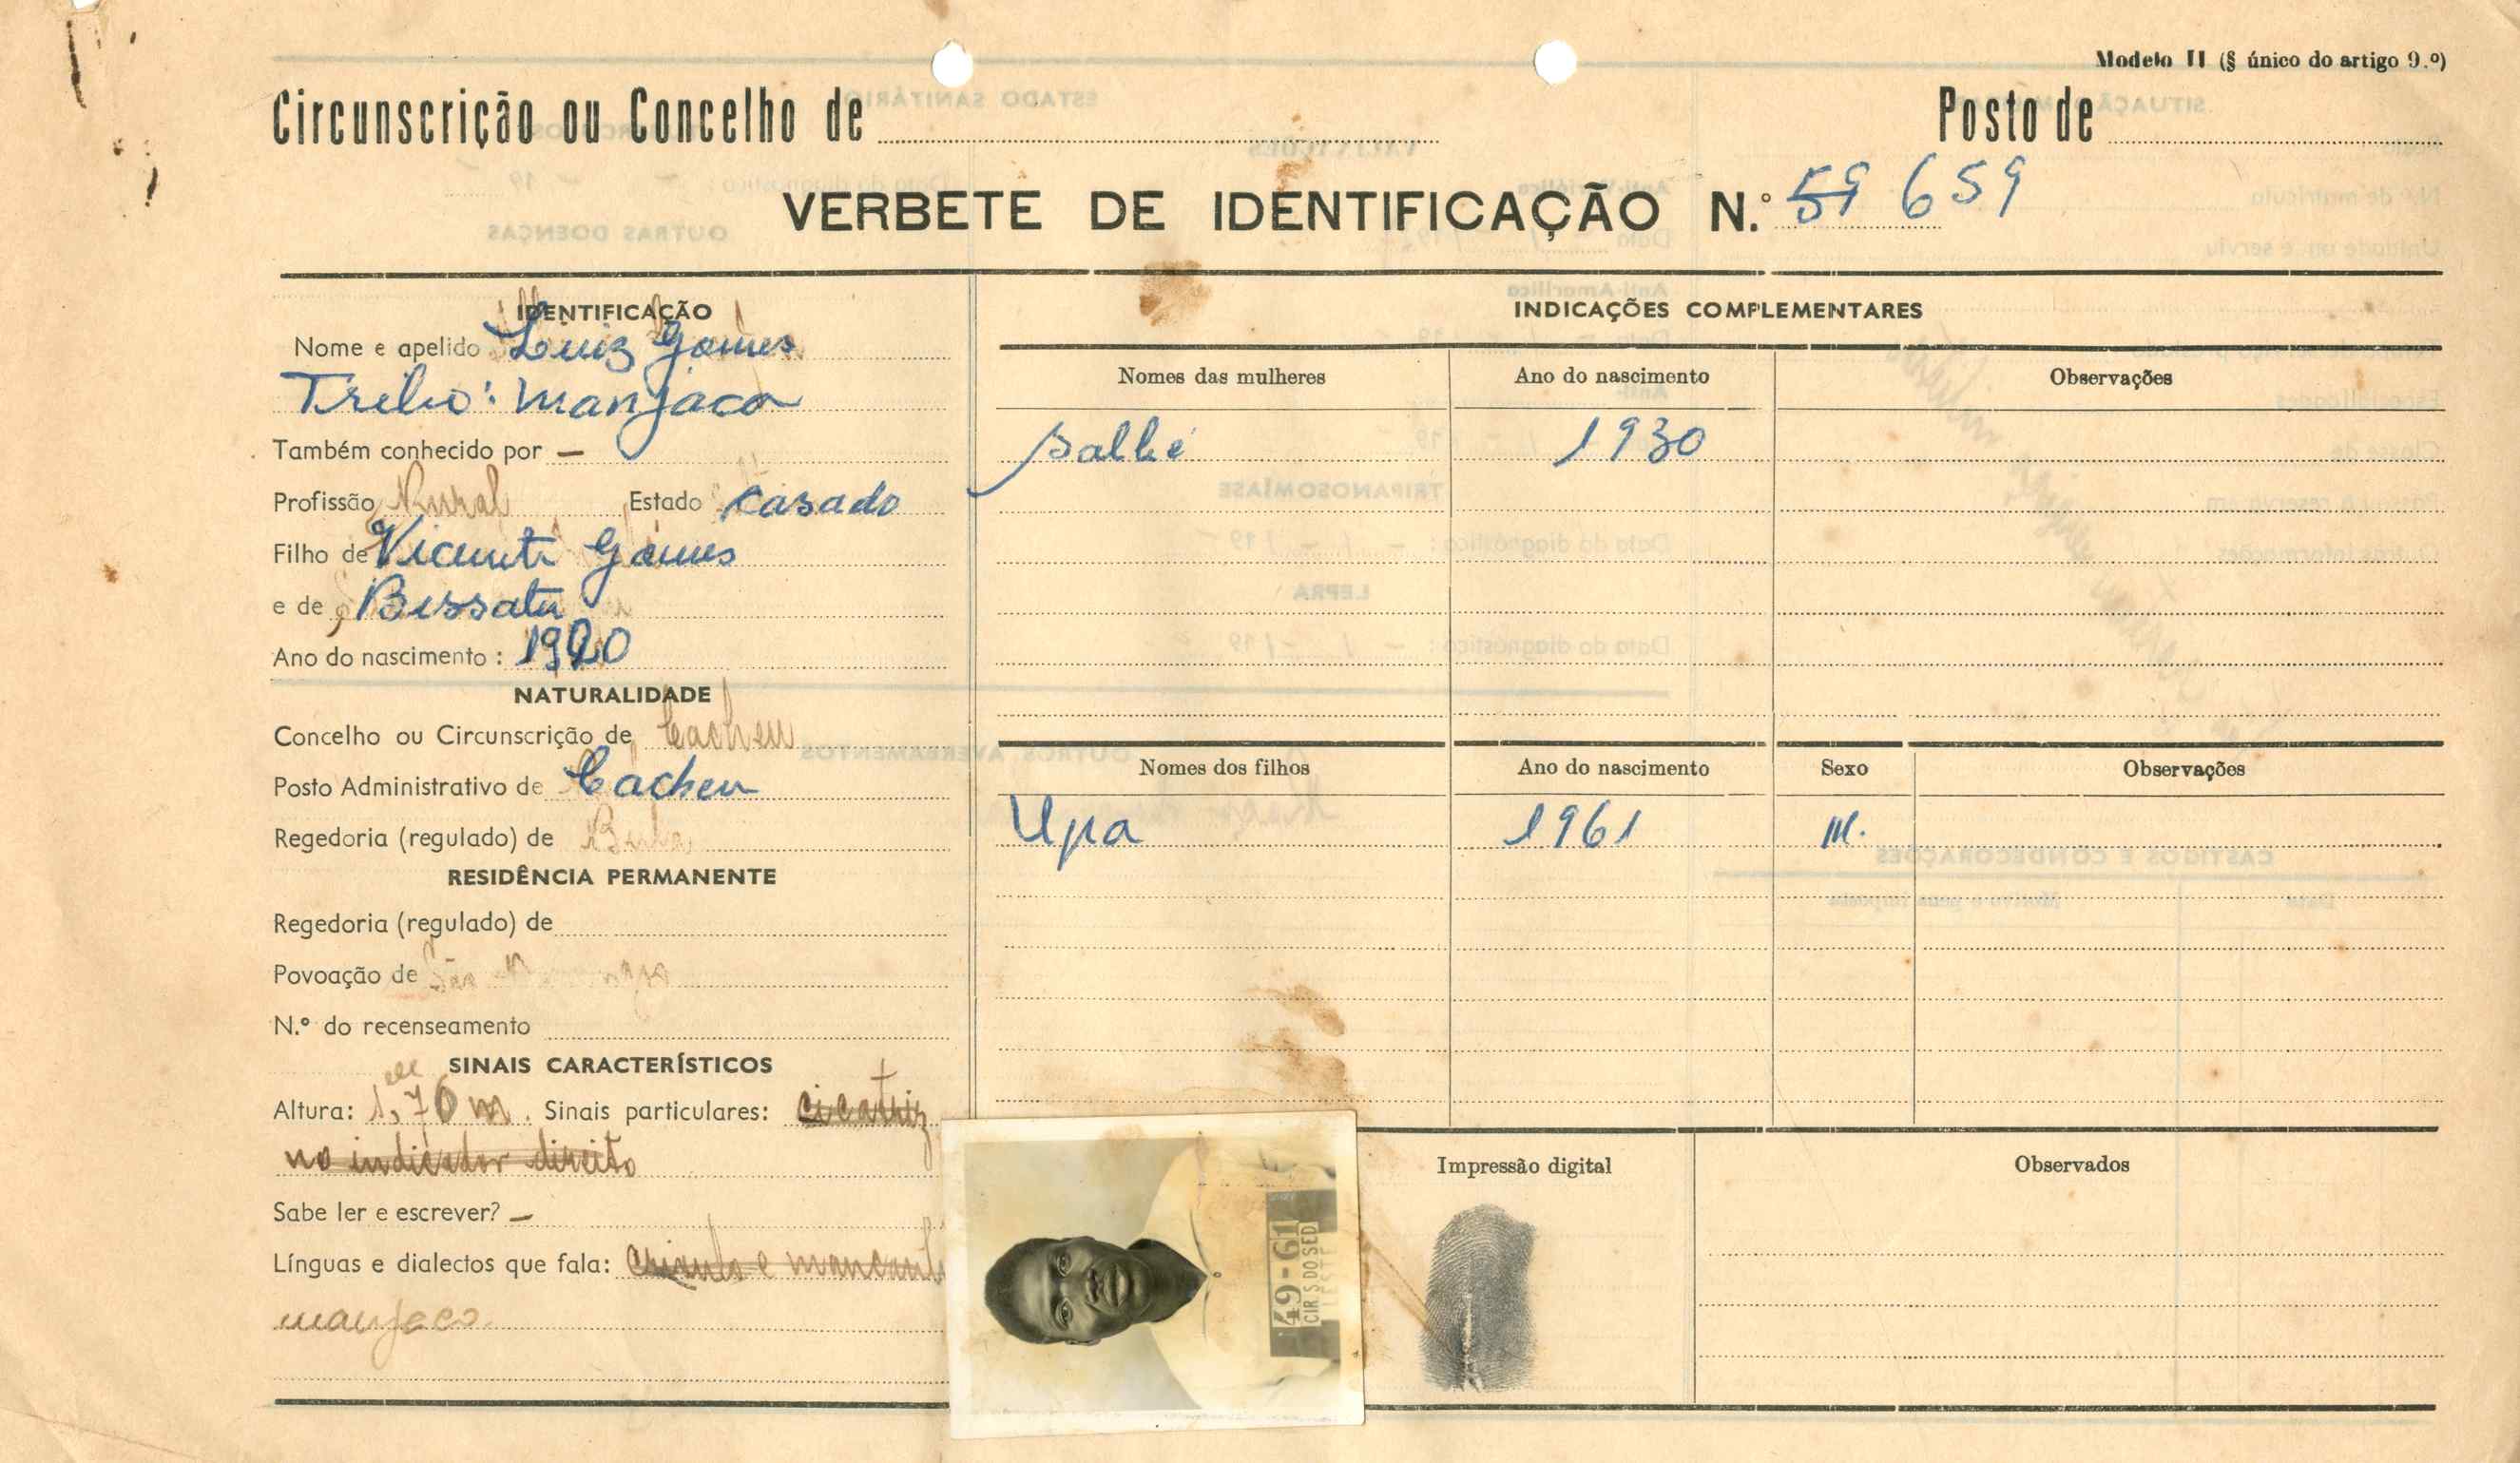 Modelo II (§ único do artigo 9.º)
Circunscrição ou Concelho de
Posto de
VERBETE DE IDENTIFICAÇÃO N.º 59 659
IDENTIFICAÇÃO
Nome e apelido Luiz Gomes
Tribo: manjaca
Também conhecido por —
Profissão Rural Estado casado
Filho de Vicente Gomes
e de Bissatu
Ano do nascimento: 1920
NATURALIDADE
Concelho ou Circunscrição de Cacheu
Posto Administrativo de Cacheu
Regedoria (regulado) de
RESIDÊNCIA PERMANENTE
Regedoria (regulado) de
Povoação de São
N.º do recenseamento
SINAIS CARACTERÍSTICOS
Altura: 1,76 m. Sinais particulares: cicatriz
no indicador direito
Sabe ler e escrever? —
Línguas e dialectos que fala: crioulo e
manjaco.
INDICAÇÕES COMPLEMENTARES
Nomes das mulheres Ano do nascimento Observações
1930
Nomes dos filhos Ano do nascimento Sexo Observações
Upa 1961 M.
49-61
CIR S DO SED
Impressão digital
Observados
ESTADO SANITÁRIO
OUTRAS DOENÇAS
TRIPANOSOMÍASE
Data do diagnóstico: - / - / 19 -
LEPRA
Data do diagnóstico: - / - / 19
OUTROS AVERBAMENTOS
CASTIGOS E CONDECORAÇÕES